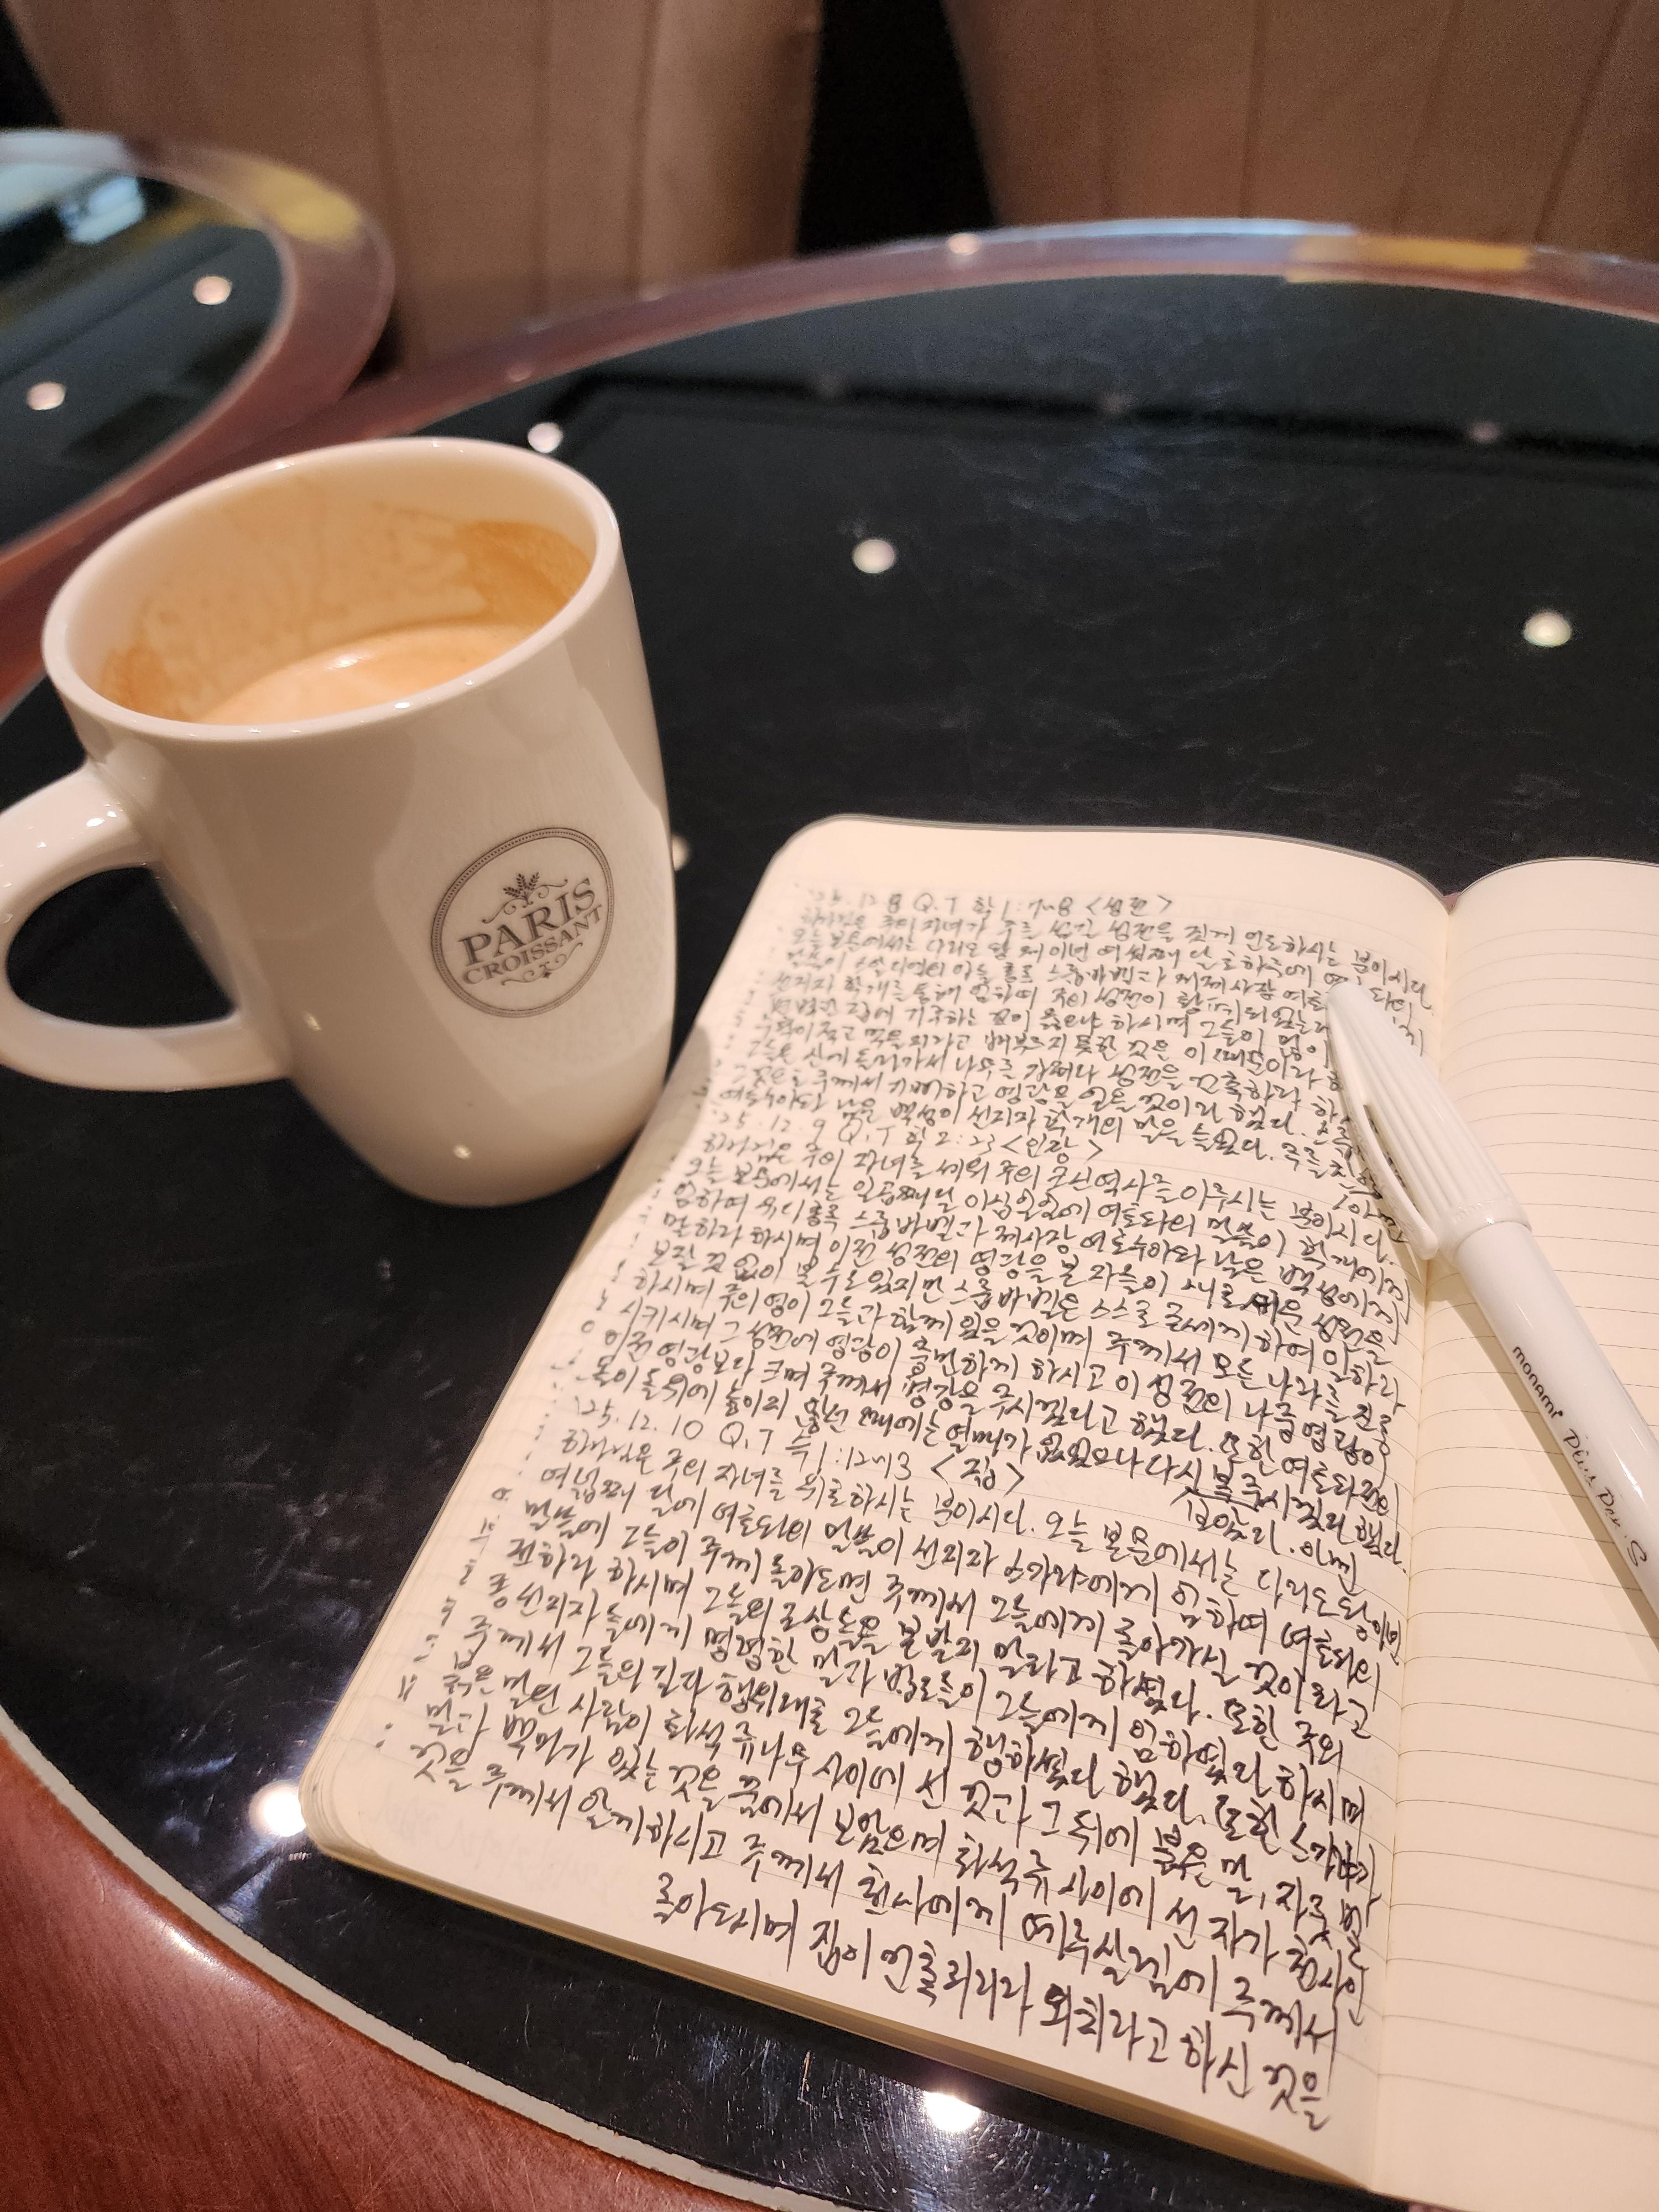 PARIS
CROISSANT
'25.12.8 Q.T 학1:7~8 <성전>
하나님은 주의 자녀가 주를 섬길 성전을 짓게 인도하시는 분이시다.
오늘 본문에서는 다리오 왕 제 이년 여섯째 달 초하루에
선지자 학개를 통해 임하여 주의 성전이 황폐되었는데
거주하는 것이 옳으냐 하시며 그들이
먹을지라고 배부르지 못한 것은 이 때문이라
그들은 산에 올라가서 나무를 가져다 성전을 건축하라
그것으로 주께서 기뻐하고 영광을 얻을 것이라 했다.
여호수아와 남은 백성이 선지자 학개의 말을 들었다.
'25.12.9 Q.T 학2:23 <인장>
하나님은 주의 자녀를 세워 주의 구신역사를 이루시는 분이시다.
오늘 본문에서는 일곱째달 이십일일에 여호와의 말씀이 학개에게
임하여 스룹바벨과 제사장 여호수아와 남은 백성에게
말하라 하시며 이전 성전의 영광을 본 자들이 새로 세운 성전을
보잘 것 없이 볼 수도 있지만 스룹바벨은 스스로 굳세게 하여 일하라
하시며 주의 영이 그들과 함께 있을 것이며 주께서 모든 나라를 진동
시키시며 그 성전에 영광이 충만하게 하시고 이 성전의 나중 영광이
이전 영광보다 크며 주께서 평강을 주시겠다고 했다. 또한 여호와의
돌이 돌위에 놓이지 않던 때에는 열매가 없었으나 다시 복 주시겠다 했다.
보았다.
'25.12.10 Q.T 슥1:12~13 <집>
하나님은 주의 자녀를 위로하시는 분이시다. 오늘 본문에서는 다리오왕 이년
여덟째 달에 여호와의 말씀이 선지자 스가랴에게 임하여 여호와의
말씀에 그들이 주께 돌아오면 주께서 그들에게 돌아가실 것이라고
전하라 하시며 그들의 조상들을 본받지 말라고 하셨다. 또한 주의
종 선지자들에게 명령한 말과 법도들이 그들에게 임하였다 하시며
주께서 그들의 길과 행위대로 그들에게 행하셨다 했다. 또한 스가랴가
붉은 말탄 사람이 화석류나무 사이에 선 것과 그 뒤에 붉은 말, 자줏빛 말
말과 백마가 있는 것을 꿈에서 보았으며 화석류 사이에 선 자가 천사인
것을 주께서 알게하시고 주께서 천사에게 예루살렘에 주께서
돌아오시며 집이 건축되리라 외치라고 하신 것을
monami Plus Pen S